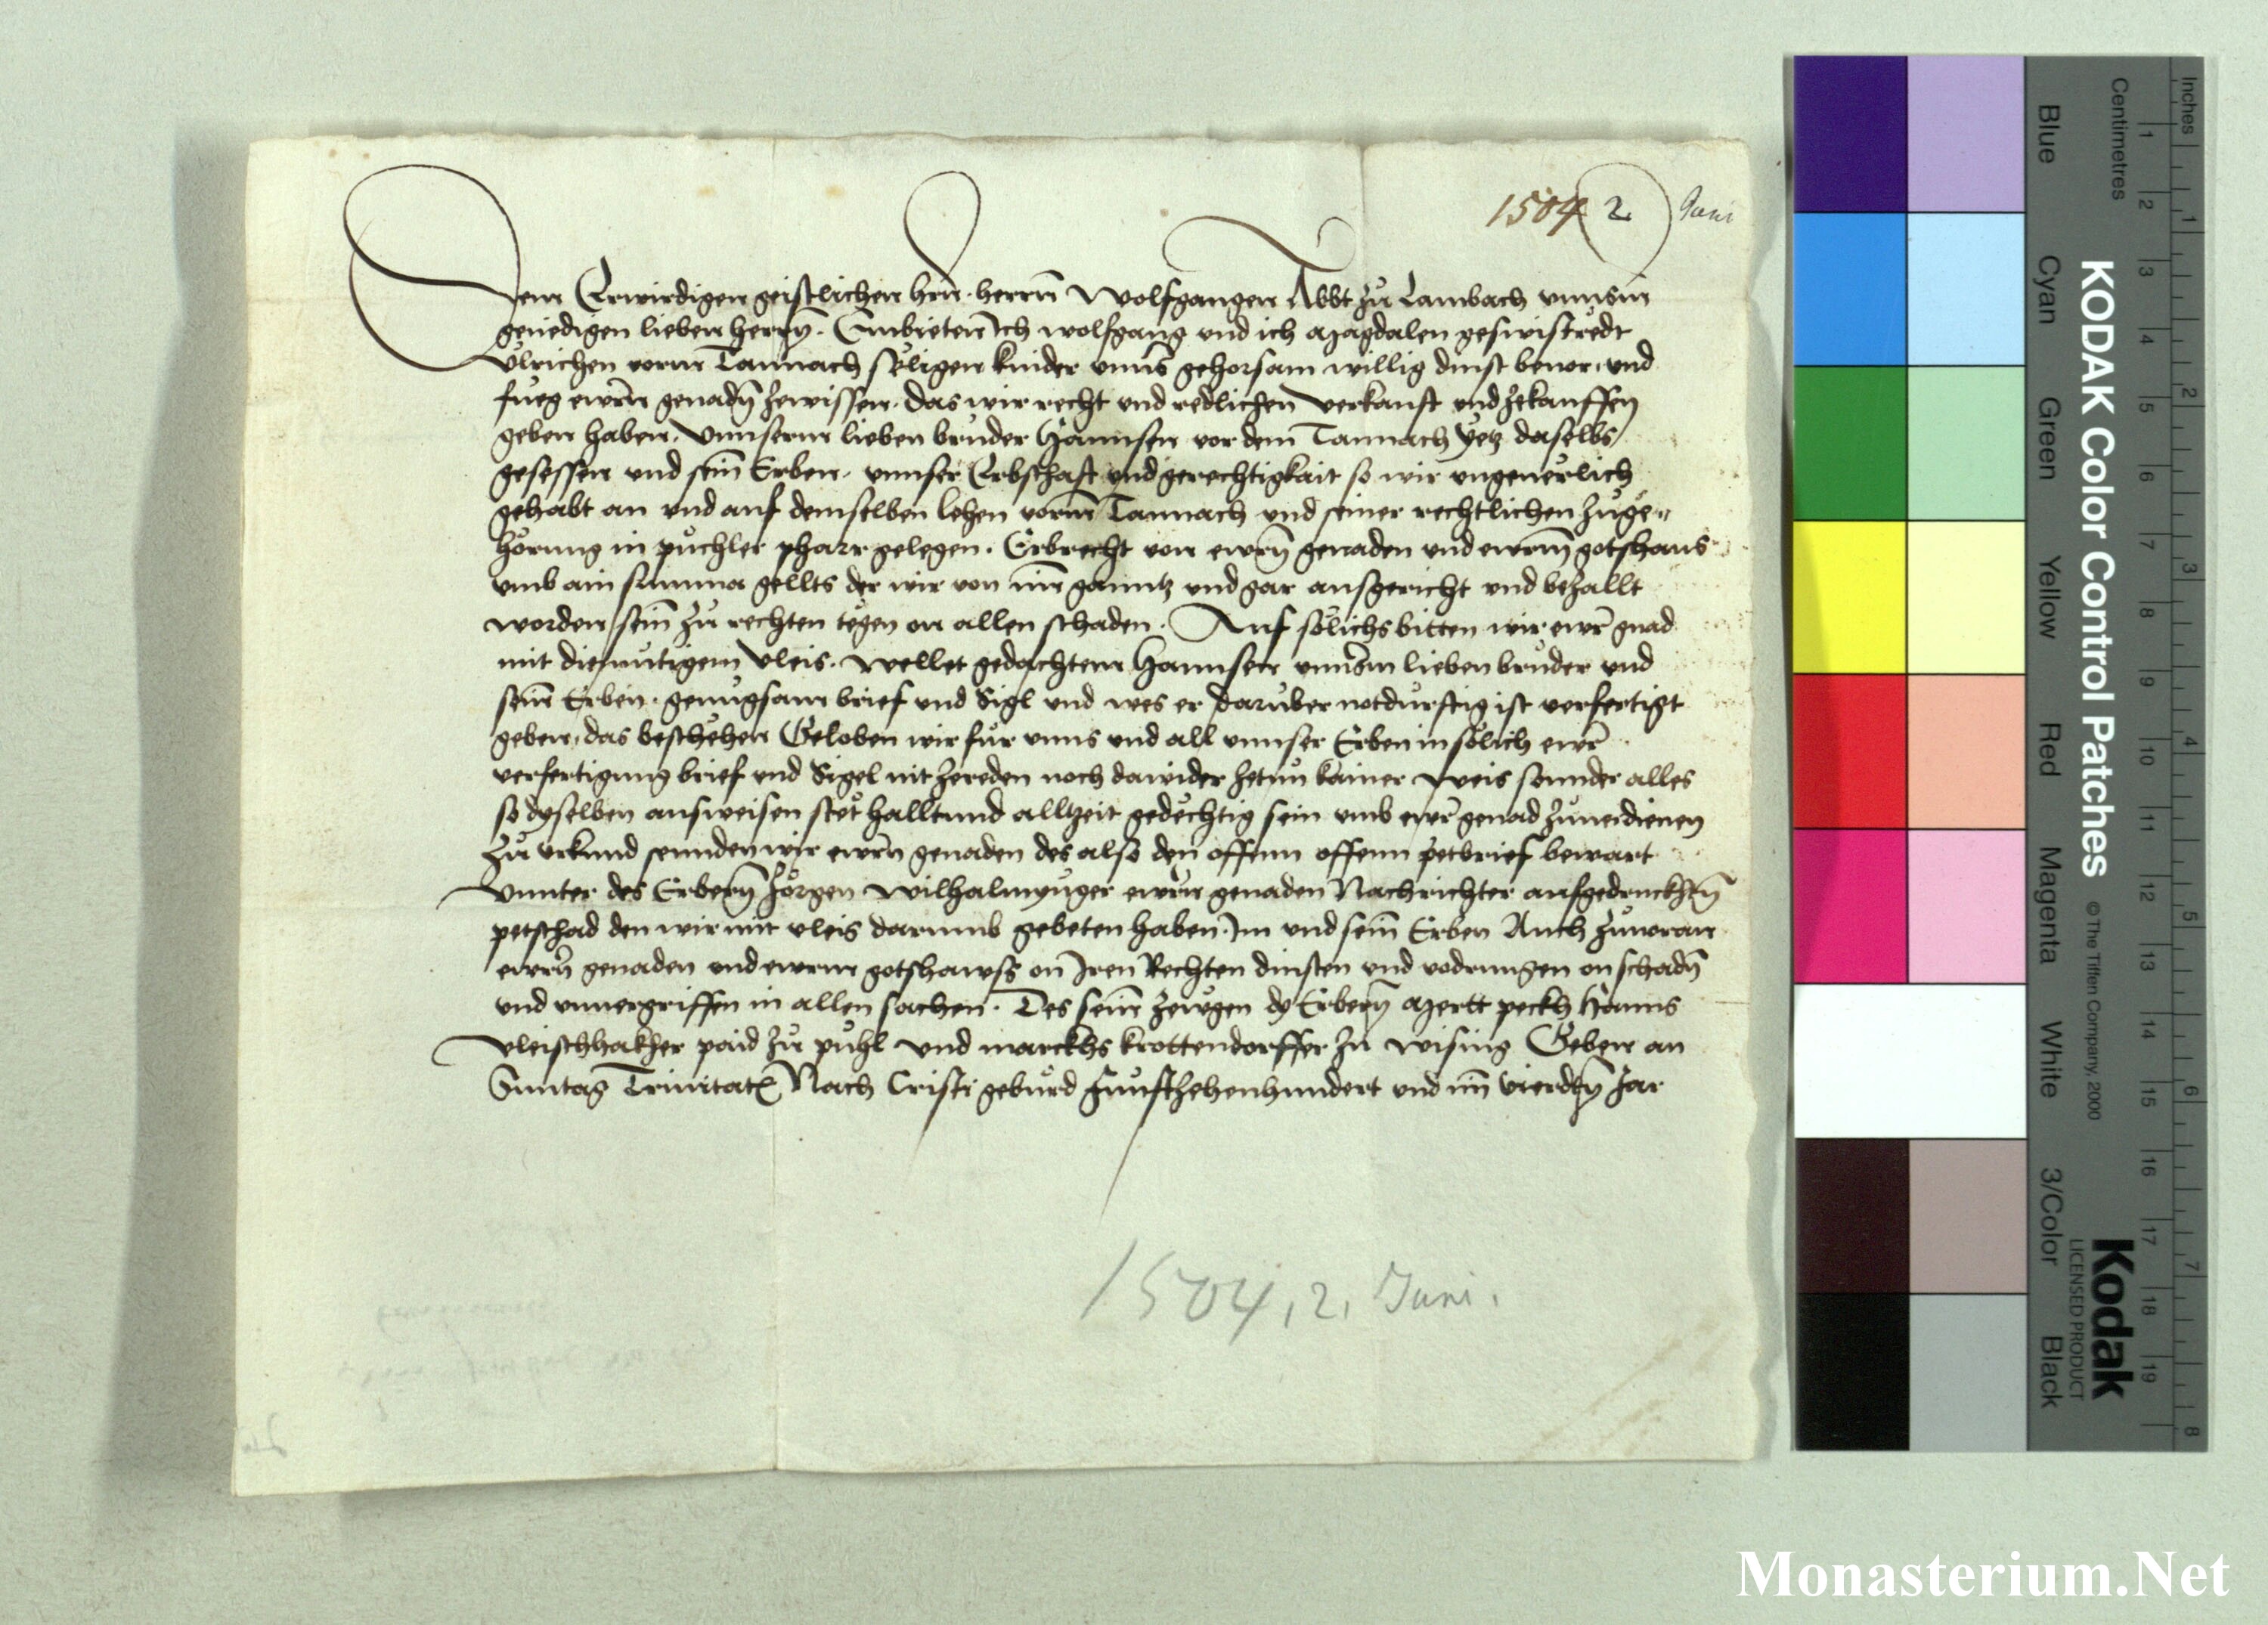 1504 2 Juni
Dem Erwirdigen geistlichen hrn. herrn Wolfgangen Abbt zu Lambach unnsm
genedigen lieben herrn. Embieten Ich wolfgang und ich Magdalen geswistredt
Ulrichen vorm Tannach seligen kinder unns gehorsam willig dinst bevor, und
fueg ewrn genadn zewissen. das wir recht und redlichen verkauft und zekauffen
geben haben. Unnserm lieben bruder Hannsen vor dem Tannach yetz daselbs
gesessen und sein Erben. unnser Erbschaft und gerechtigkait so wir ungeverlich
gehabt an und auf demselben lehen vorm Tannach und seiner rechtlichen zuge„
hörung in puchler pharr gelegen. Erbrecht von ewrn genaden und ewrm gotshaus
umb ain summa gellts der wir von im ganntz und gar ausgericht und bezallt
worden sein zu rechten tegen on allen schaden. Auf solichs bitten wir ewr gnad
mit diemutigem vleis. wellet gedachtem Hannsen unnserm lieben bruder und
sein Erben. genugsam brief und Sigl und wes er daruber notdurftig ist verfertigt
geben, das beschehen Geloben wir für unns und all unnser Erben in solich ewr
verfertigung brief und Sigel nit zereden noch dawider zetun kainer weis sunnder alles
so dyselben ausweisen stet hallt und alltzeit gedechtig sein umb ewr genad zuverdienen
Zu urkund sennden wir ewrn genaden des also den offenn offenn petbrief bewart
Unnter des Erbern Jörgen ewrn genaden Nachrichter aufgedruckhten
petschad den wir mit vleis darumb gebeten haben. Im und sein Erben Auch zuvoran
ewrn genaden und ewrm gotshawss on Iren Rechten dinsten und vodrungen on schadn
und unvergriffen in allen sachen. Des sein zewgen dy Erbern Mertt peckh Hanns
vleischhakher paid zu puhl und marckhs krottendorffer zu wising Geben an
Sunntag Trinitatis Nach Cristi geburd Funftzehenhundert und im vierden Jar
1504, 2, Juni.
Inches
Centimetres
1 2 3 4 5 6 7 8
1 2 3 4 5 6 7 8 9 10 11 12 13 14 15 16 17 18 19
KODAK Color Control Patches © The Tiffen Company, 2000
Kodak
LICENSED PRODUCT
Blue Cyan Green Yellow Red Magenta White 3/Color Black
Monasterium.Net